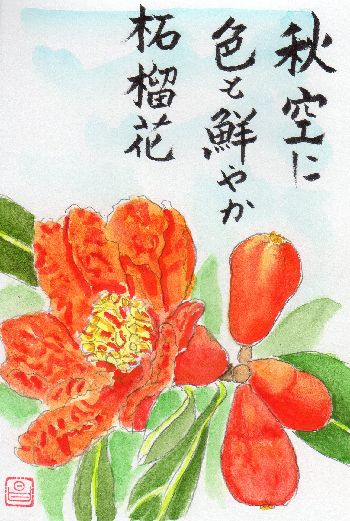 秋空に
色も鮮やか
柘榴花